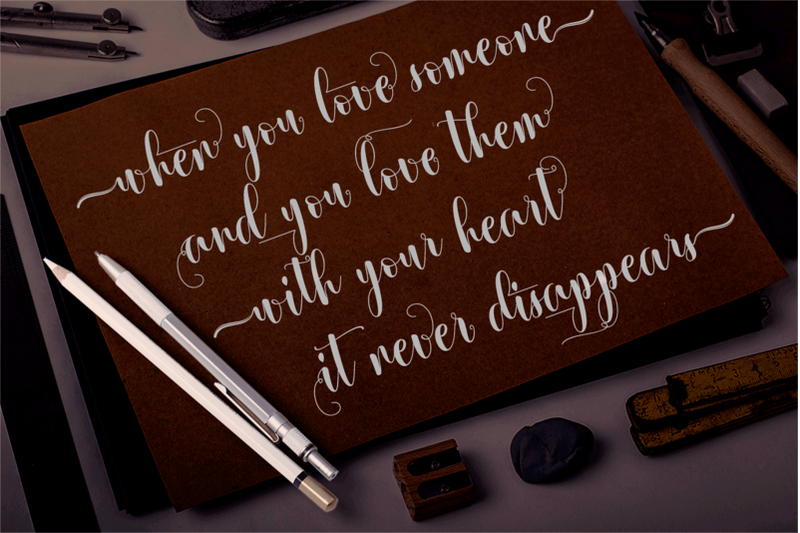 when you love someone
and you love them
with your heart
it never disappears